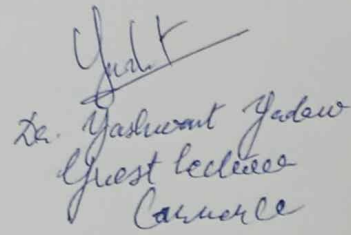 Dr. Yashwant Yadaw
Guest lecturer
Commerce